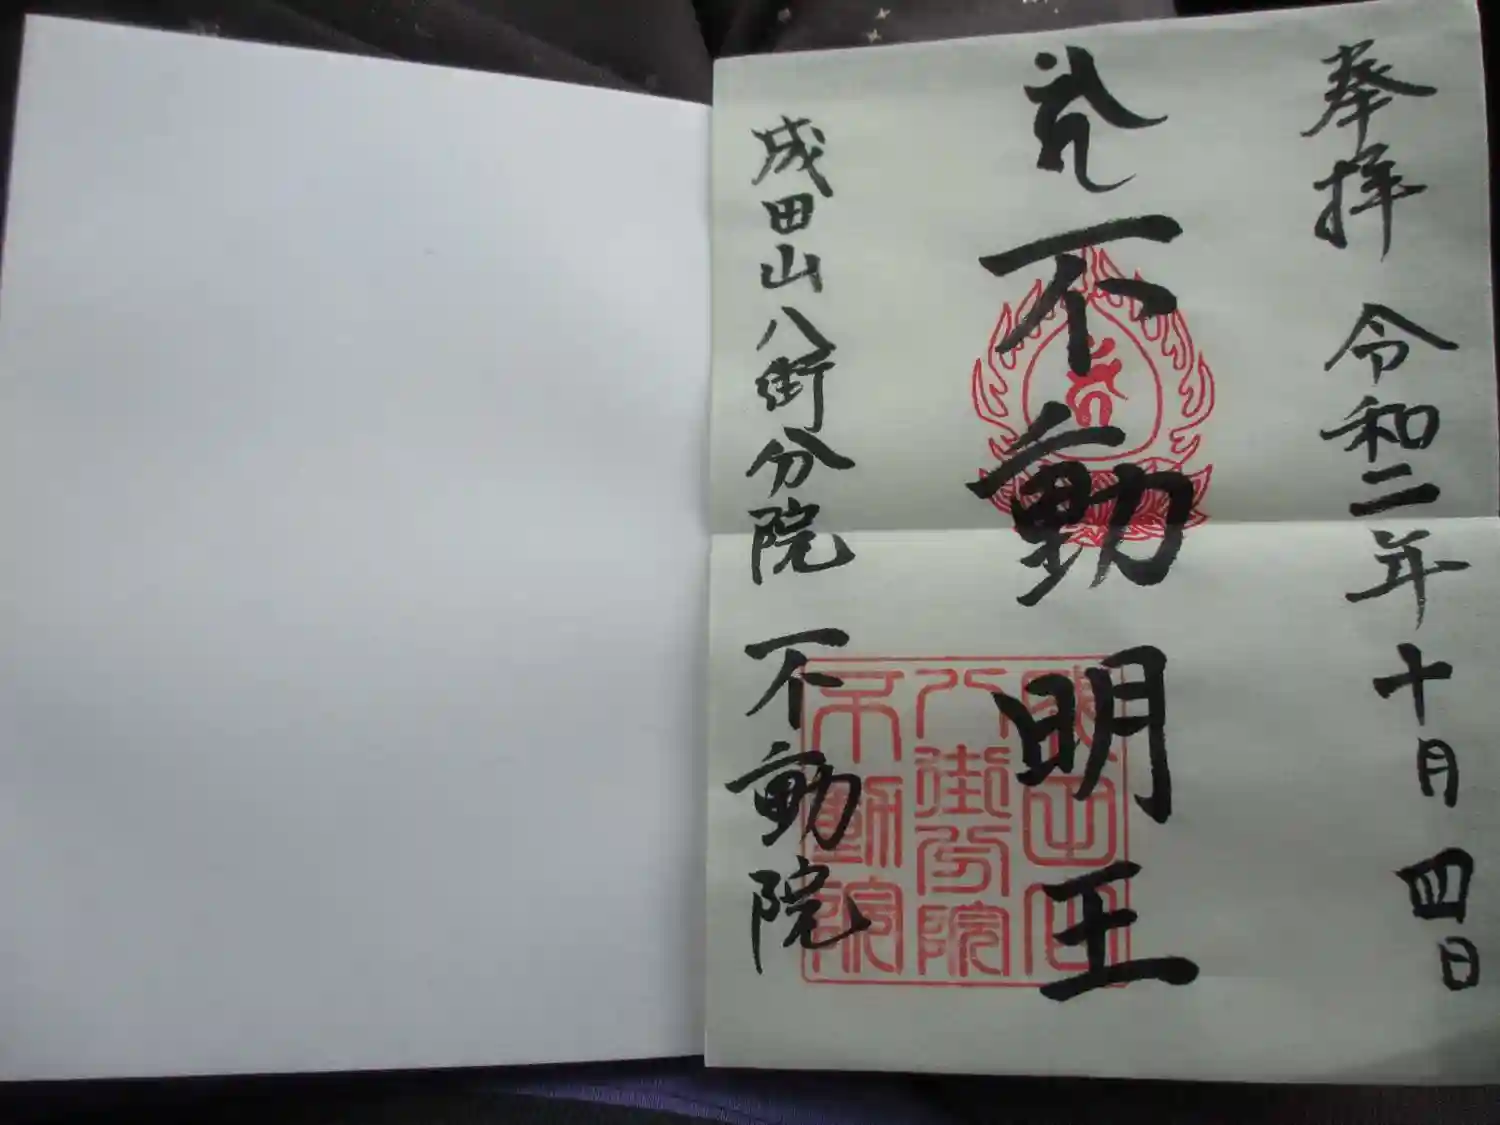 奉拝 令和二年十月四日
不動明王
成田山八街分院 不動院
成田山
八街分院
不動院